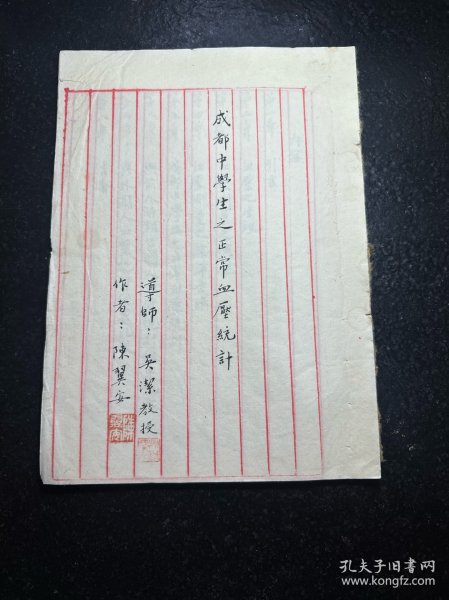 成都中學生之正常血壓統計
導師：吳潔教授
作者：陳翼安
孔夫子旧书网
www.kongfz.com